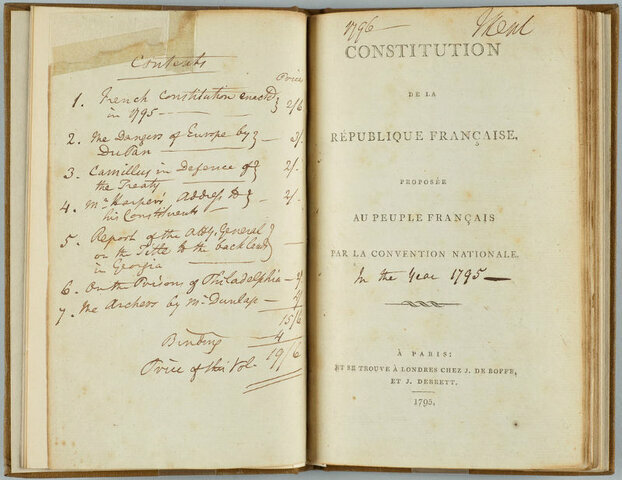 Contents
Price
1. French Constitution enacted } 2/6
in 1795
2. The Dangers of Europe by } 3/.
Du Pan
3. Camillus in Defence of } 2/.
the Treaty
4. Mr Harper's Address to } 2/.
his Constituents
5. Report of the Atty. General }
on the Title to the back land
in Georgia
6. On the Prisons of Philadelphia
7. The Archers by Mr Dunlap
15/6
Binding 4
Price of this Vol. 19/6
1796
CONSTITUTION
DE LA
RÉPUBLIQUE FRANÇAISE,
PROPOSÉE
AU PEUPLE FRANÇAIS
PAR LA CONVENTION NATIONALE.
In the Year 1795
À PARIS:
ET SE TROUVE À LONDRES CHEZ J. DE BOFFE,
ET J. DEBRETT.
1795.